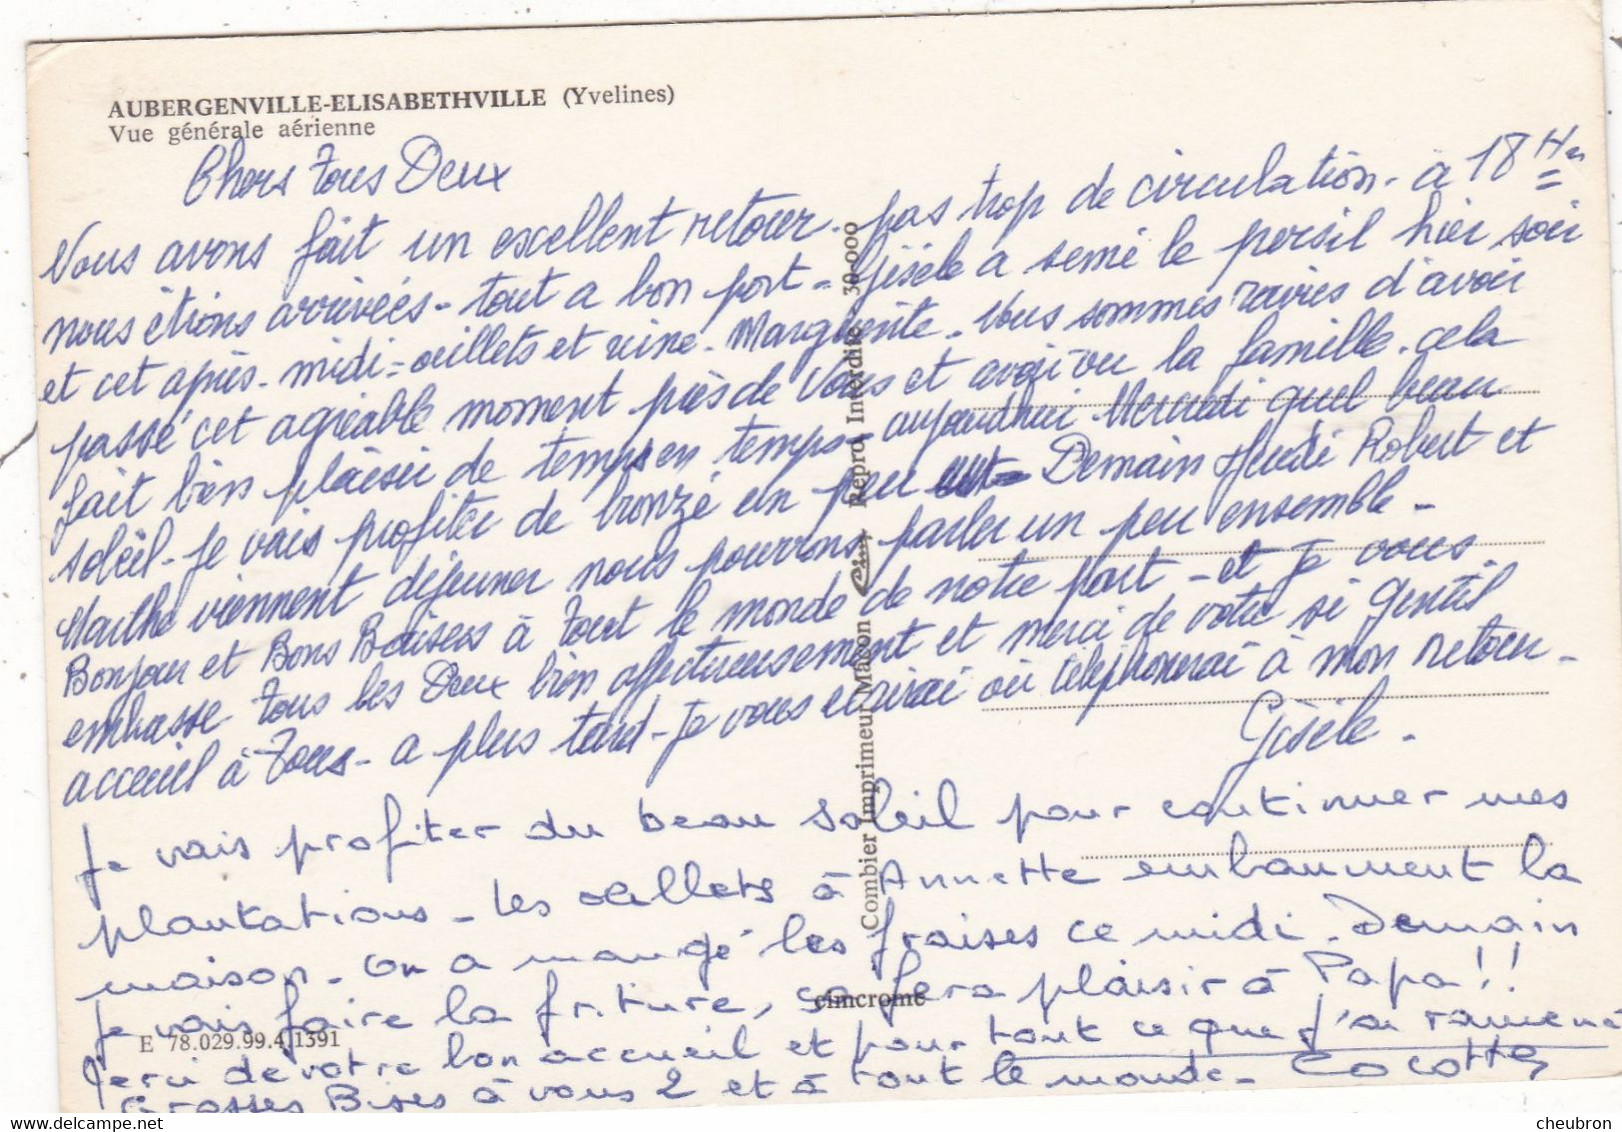 AUBERGENVILLE-ELISABETHVILLE (Yvelines)
Vue générale aérienne
Chers Tous Deux
Nous avons fait un excellent retour. pas trop de circulation - à 18 Hes
nous étions arrivées - tout a bon port - Gisèle a semé le persil hier soir
et cet après-midi = œillets et reine-Marguerite. Nous sommes ravies d'avoir
passé cet agréable moment près de Vous et avoir vu la famille. cela
fait bien plaisir de temps en temps - aujourd'hui Mercredi quel beau
soleil - Je vais profiter de bronzé un peu - Demain Jeudi Robert et
Marthe viennent déjeuner nous pourrons parler un peu ensemble -
Bonjour et Bons Baisers à Tout le monde de notre part - et je vous
embrasse Tous les Deux bien affectueusement et merci de votre si gentil
acceuil à Tous - a plus tard - Je vous écrirai ou téléphonerai à mon retour -
Gisèle.
Je vais profiter du beau soleil pour continuer mes
plantations - Les œillets à Annette embaument la
maison - On a mangé les fraises ce midi. Demain
je vais faire la friture, ça fera plaisir à Papa !!
Merci de votre bon accueil et pour tout ce que j'ai ramené
Grosses Bises à vous 2 et à tout le monde - Cocotte
Combier Imprimeur Macon Cim, Repro. Interdite 30.000
cimcrome
E 78.029.99.4.1391
cheubron